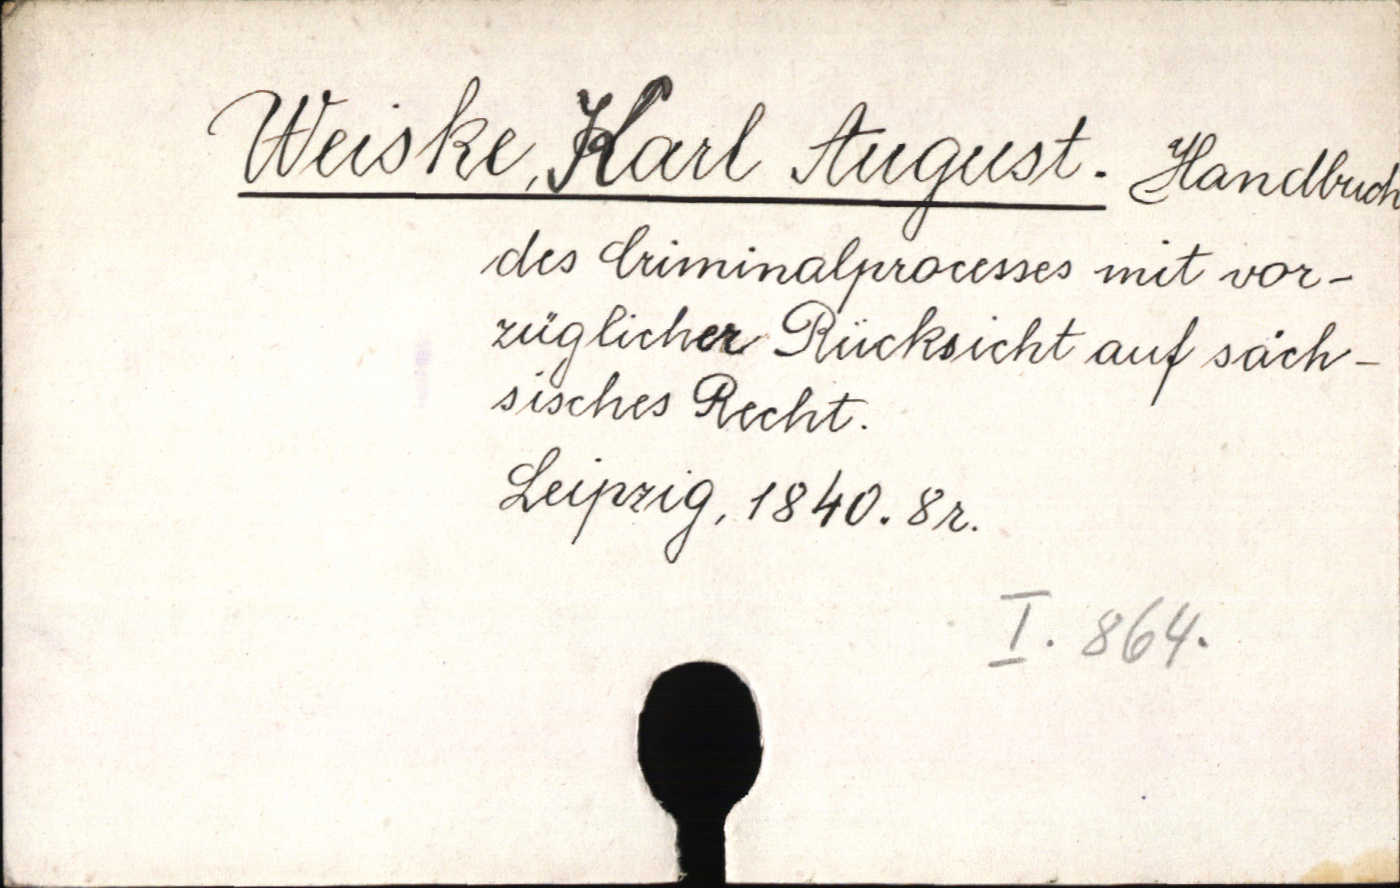 Weiske, Karl August. Handbuch
des Criminalprocesses mit vor-
züglicher Rücksicht auf säch-
sisches Recht.
Leipzig, 1840. 8r.
I. 864.